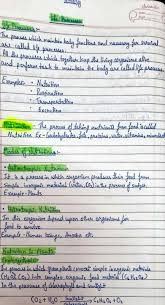 Life Processes
Life Processes -
The process which maintain body functions and necessary for survival
are called life processes.
All the processes which together keep the living organisms alive
and perform task to maintain the body are called life processes.
Examples - Nutrition
- Respiration
- Transportation
- Excretion
Nutrition - The process of taking nutrients from food is called
Nutrition Ex - Carbohydrates, fats, proteins, water, vitamins, minerals
Modes of Nutrition -
Autotrophic Nutrition
It is a process in which organism produces their food from
simple inorganic material (water, CO2) in the presence of sunlight.
Example - Plants
Heterotrophic Nutrition
In this organism depend upon other organisms for
food to survive
Example - Human beings, Amoeba etc.
Nutrition in Plants
The process in which green plants convert simple inorganic materials
(CO2, H2O) into complex organic food material (C6H12O6)
In the presence of chlorophyll and sunlight
CO2 + H2O sunlight C6H12O6 + O2